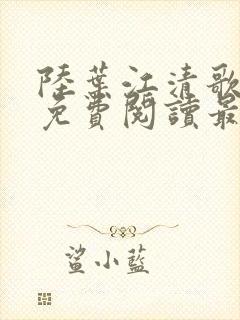 陸葉江清歌
免費閱讀最
鯊小藍